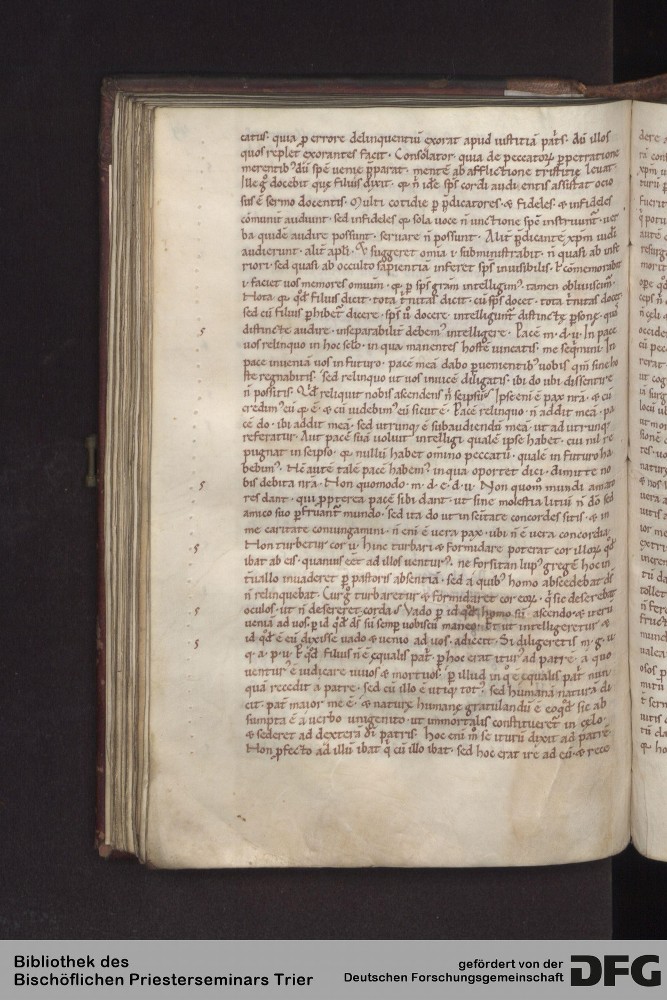 catus. quia p errore delinquentiū exorat apud iustitiā patͥs. dū illos
quos replet exorantes facit. Consolator. quia de peccatoꝝ ꝑpetratione
merentibꝰ dū spē uenie p̄parat. mentē ab afflictione tristitię leuat.
Ille uoꝰ docebit quę filius dixit. qꝫ n̄ idē sp̄s cordi audientis assistat ocio
sus ē sermo docentis. Multi cotidie p p̄dicatores. & fideles. & infideles
cōmunit audiunt. sed infideles qꝫ sola uoce n̄ unctione sp̄o instruunt. uer
ba quidē audire possunt. seruare n̄ possunt. Alit p̄dicantē xp̄m iudei
audierunt. alit apl̄i. & suggeret omīa i subministrabit. n̄ quasi ab infe
riori. sed quasi ab occulto sapientiam inferet sp̄s inuisibilis. ł cōmemorabit
i. faciet uos memores omniū. qꝫ p sp̄s grām intelligimꝰ. tamen obliuiscimꝰ.
Nota qꝫ qd̄ filius dicit. tota trinitas dicit. cū sp̄s docet. tota trinitas docet.
sed cū filius ꝑhibet̄ dicere. sp̄s u docere. intelligunt distinctę ꝑsonę. quas
distincte audire. inseparabilit debemꝰ intelligere. Pacē. m. d. u. In pace
uos relinquo in hoc sclo. in qua manentes hostē uincatis. me seqͥmini. In
pace inueniā uos in futuro. pacē meā dabo puenientibꝰ uobis qm̄ sine ho
ste regnabitis. Sed relinquo ut uos inuicē diligatis. ibi do ubi dissentire
n̄ possitis. Vł reliquit nobis ascendens n̄ seipsū. Ipse enī ē pax nr̄a. & cū
credimꝰ eū qꝫ ē. & cū uidebimꝰ eū sicut ē. Pacē relinquo. n̄ addit meā. pa
cē do. ibi addit meā. sed utrunqꝫ ē subaudiendū meā. ut ad utrunqꝫ
referatur. Aut pacē suā uoluit intelligi. qualē ipse habet. cui nil re
pugnat in seipso. qꝫ nullū habet omīno peccatū. qualē in futuro ha
bebimꝰ. Nē autē talē pacē habemꝰ. in qua oportet dici. dimitte no
bis debita nr̄a. Non quomodo. m. d. e. d. u. Non quom̄ mundi amato
res dant. qui ppterea pacē sibi dant. ut sine molestia litiū n̄ dō sed
amico suo pfruant̄ mundo. sed ita do ut in scītate concordes sitis. & in
me caritate coniungamini. n̄ enī ē uera pax. ubi n̄ ē uera concordia.
Non turbetur cor u. hinc turbari & formidare poterat cor illoꝝ qd̄
ibat ab eis. quamuis eēt ad illos uenturꝰ. ne forsitan lupꝰ gregē hoc in
teruallo inuaderet p pastoris absentiā. sed a quibꝰ homo abscedebat ds̄
n̄ relinquebat. Cur gͦ turbaretur & formidaret cor eoꝝ. qͥ sic deserebat
oculos. ut n̄ desereret corda. Vado p id qd̄ homo sū. ascendo & iterū
ueniā ad uos. p id qd̄ ds̄ sū semp uobiscū maneo. Et ut intelligeretur &
id qd̄ ē eū dixisse uado & uenio ad uos. adiecit. Si diligeretis. m. g. u.
q. a. p. u. ł qd̄ filius n̄ ē ęqualis patͥ. p hoc erat iturꝰ ad patrē. a quo
uenturꝰ ē iudicare uiuos & mortuos. p illud in qͦ ę ęqualis patͥ nun
quā recedit a patre. sed cū illo ē utiqꝫ totꝰ. sed humanā naturā di
cit. pater maior me ē. & naturę humanę gratulandū ē eo qd̄ sic ab
sumpta ē a uerbo unigenito ut immortalis constitueret̄ in cęlo.
& sederet ad dexterā dī patris. hoc enī m̄ se iturū dixit ad patrē.
Non pfecto ad illū ibat qͥ cū illo ibat. sed hoc erat ire ad eū. & rece
Bibliothek des
Bischöflichen Priesterseminars Trier
gefördert von der
Deutschen Forschungsgemeinschaft
DFG